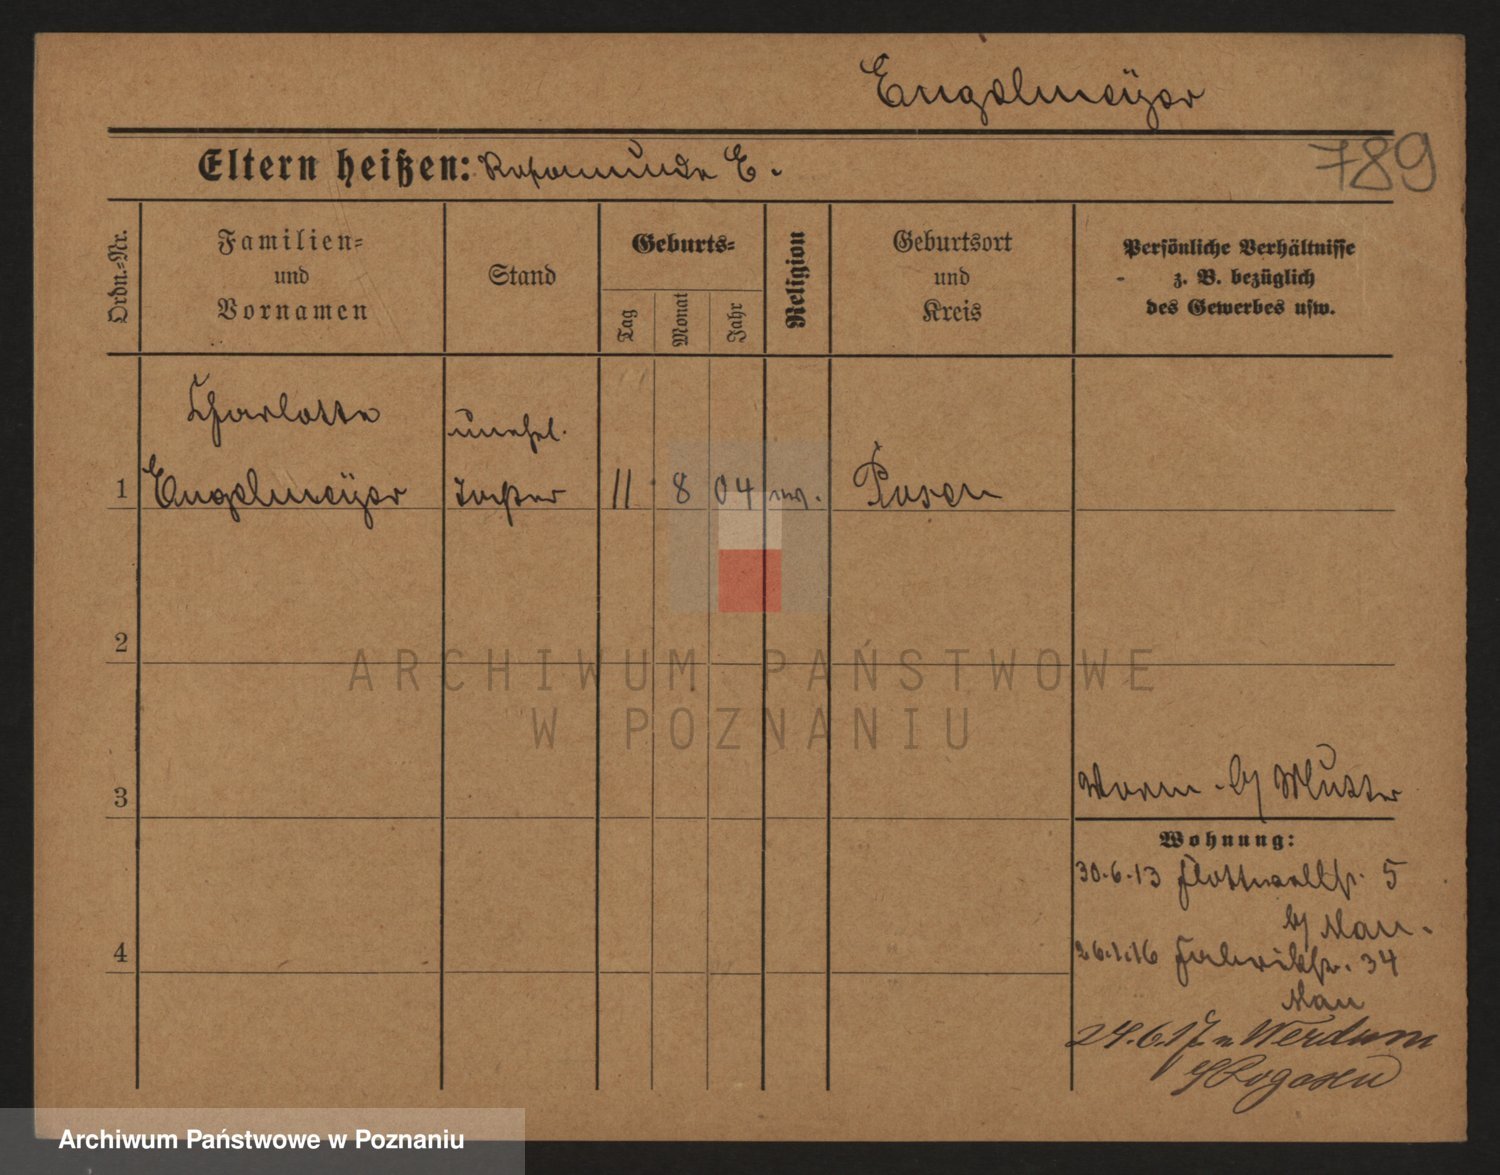 Engelmeÿer
Eltern heißen: Rosamunde E.
789
Ordn.-Nr.
Familien-
und
Vornamen
Stand
Geburts-
Tag
Monat
Jahr
Religion
Geburtsort
und
Kreis
Persönliche Verhältnisse
z. B. bezüglich
des Gewerbes usw.
Charlotte
unehel.
1 Engelmeÿer Tochter 11 8 04 Posen
2
ARCHIWUM PAŃSTWOWE
W POZNANIU
3
Mutter
Wohnung:
30.6.13 Flottwellstr. 5
b/
4
26.1.16 Fabrikstr. 34
24.6.17 n Werdum
Rogasen
Archiwum Państwowe w Poznaniu